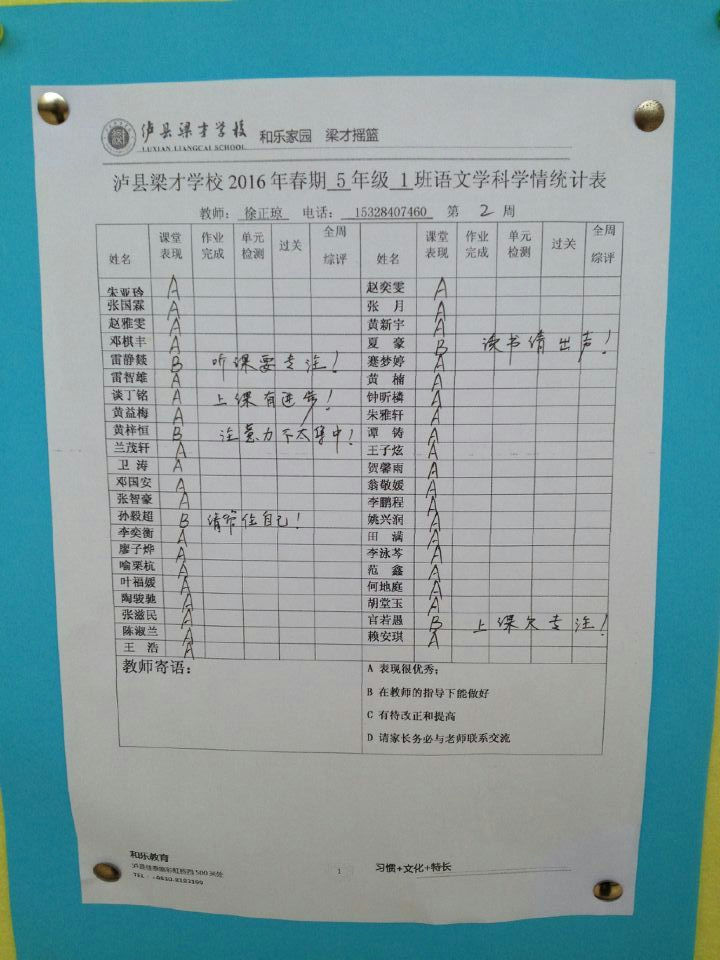 泸县梁才学校 和乐家园 梁才摇篮
LUXIAN LIANGCAI SCHOOL
泸县梁才学校 2016 年春期 5 年级 1 班语文学科学情统计表
教师： 徐正琼 电话： 15328407460 第 2 周
姓名 课堂表现 作业完成 单元检测 过关 全周综评 姓名 课堂表现 作业完成 单元检测 过关 全周综评
朱亚玲 A 赵奕雯 A
张国霖 A 张月 A
赵雅雯 A 黄新宇 A
邓棋丰 A 夏豪 B 读书请出声！
雷静燚 B 听课要专注！ 蹇梦婷 A
雷智雄 A 黄楠 A
谈丁铭 A 上课有进步！ 钟昕橉 A
黄益梅 A 朱雅轩 A
黄梓恒 B 注意力不太集中！ 谭铸 A
兰茂轩 A 王子炫 A
卫涛 A 贺馨雨 A
邓国安 A 翁敬媛 A
张智豪 A 李鹏程 A
孙毅超 B 请管住自己！ 姚兴润 A
李奕衡 A 田满 A
廖子烨 A 李泳芩 A
喻栗杭 A 范鑫 A
叶福媛 A 何地庭 A
陶骏驰 A 胡堂玉 A
张滋民 A 官若愚 B 上课欠专注！
陈淑兰 A 赖安琪 A
王浩 A
教师寄语： A 表现很优秀；
B 在教师的指导下能做好
C 有待改正和提高
D 请家长务必与老师联系交流
和乐教育 1 习惯+文化+特长
500 米处
TEL